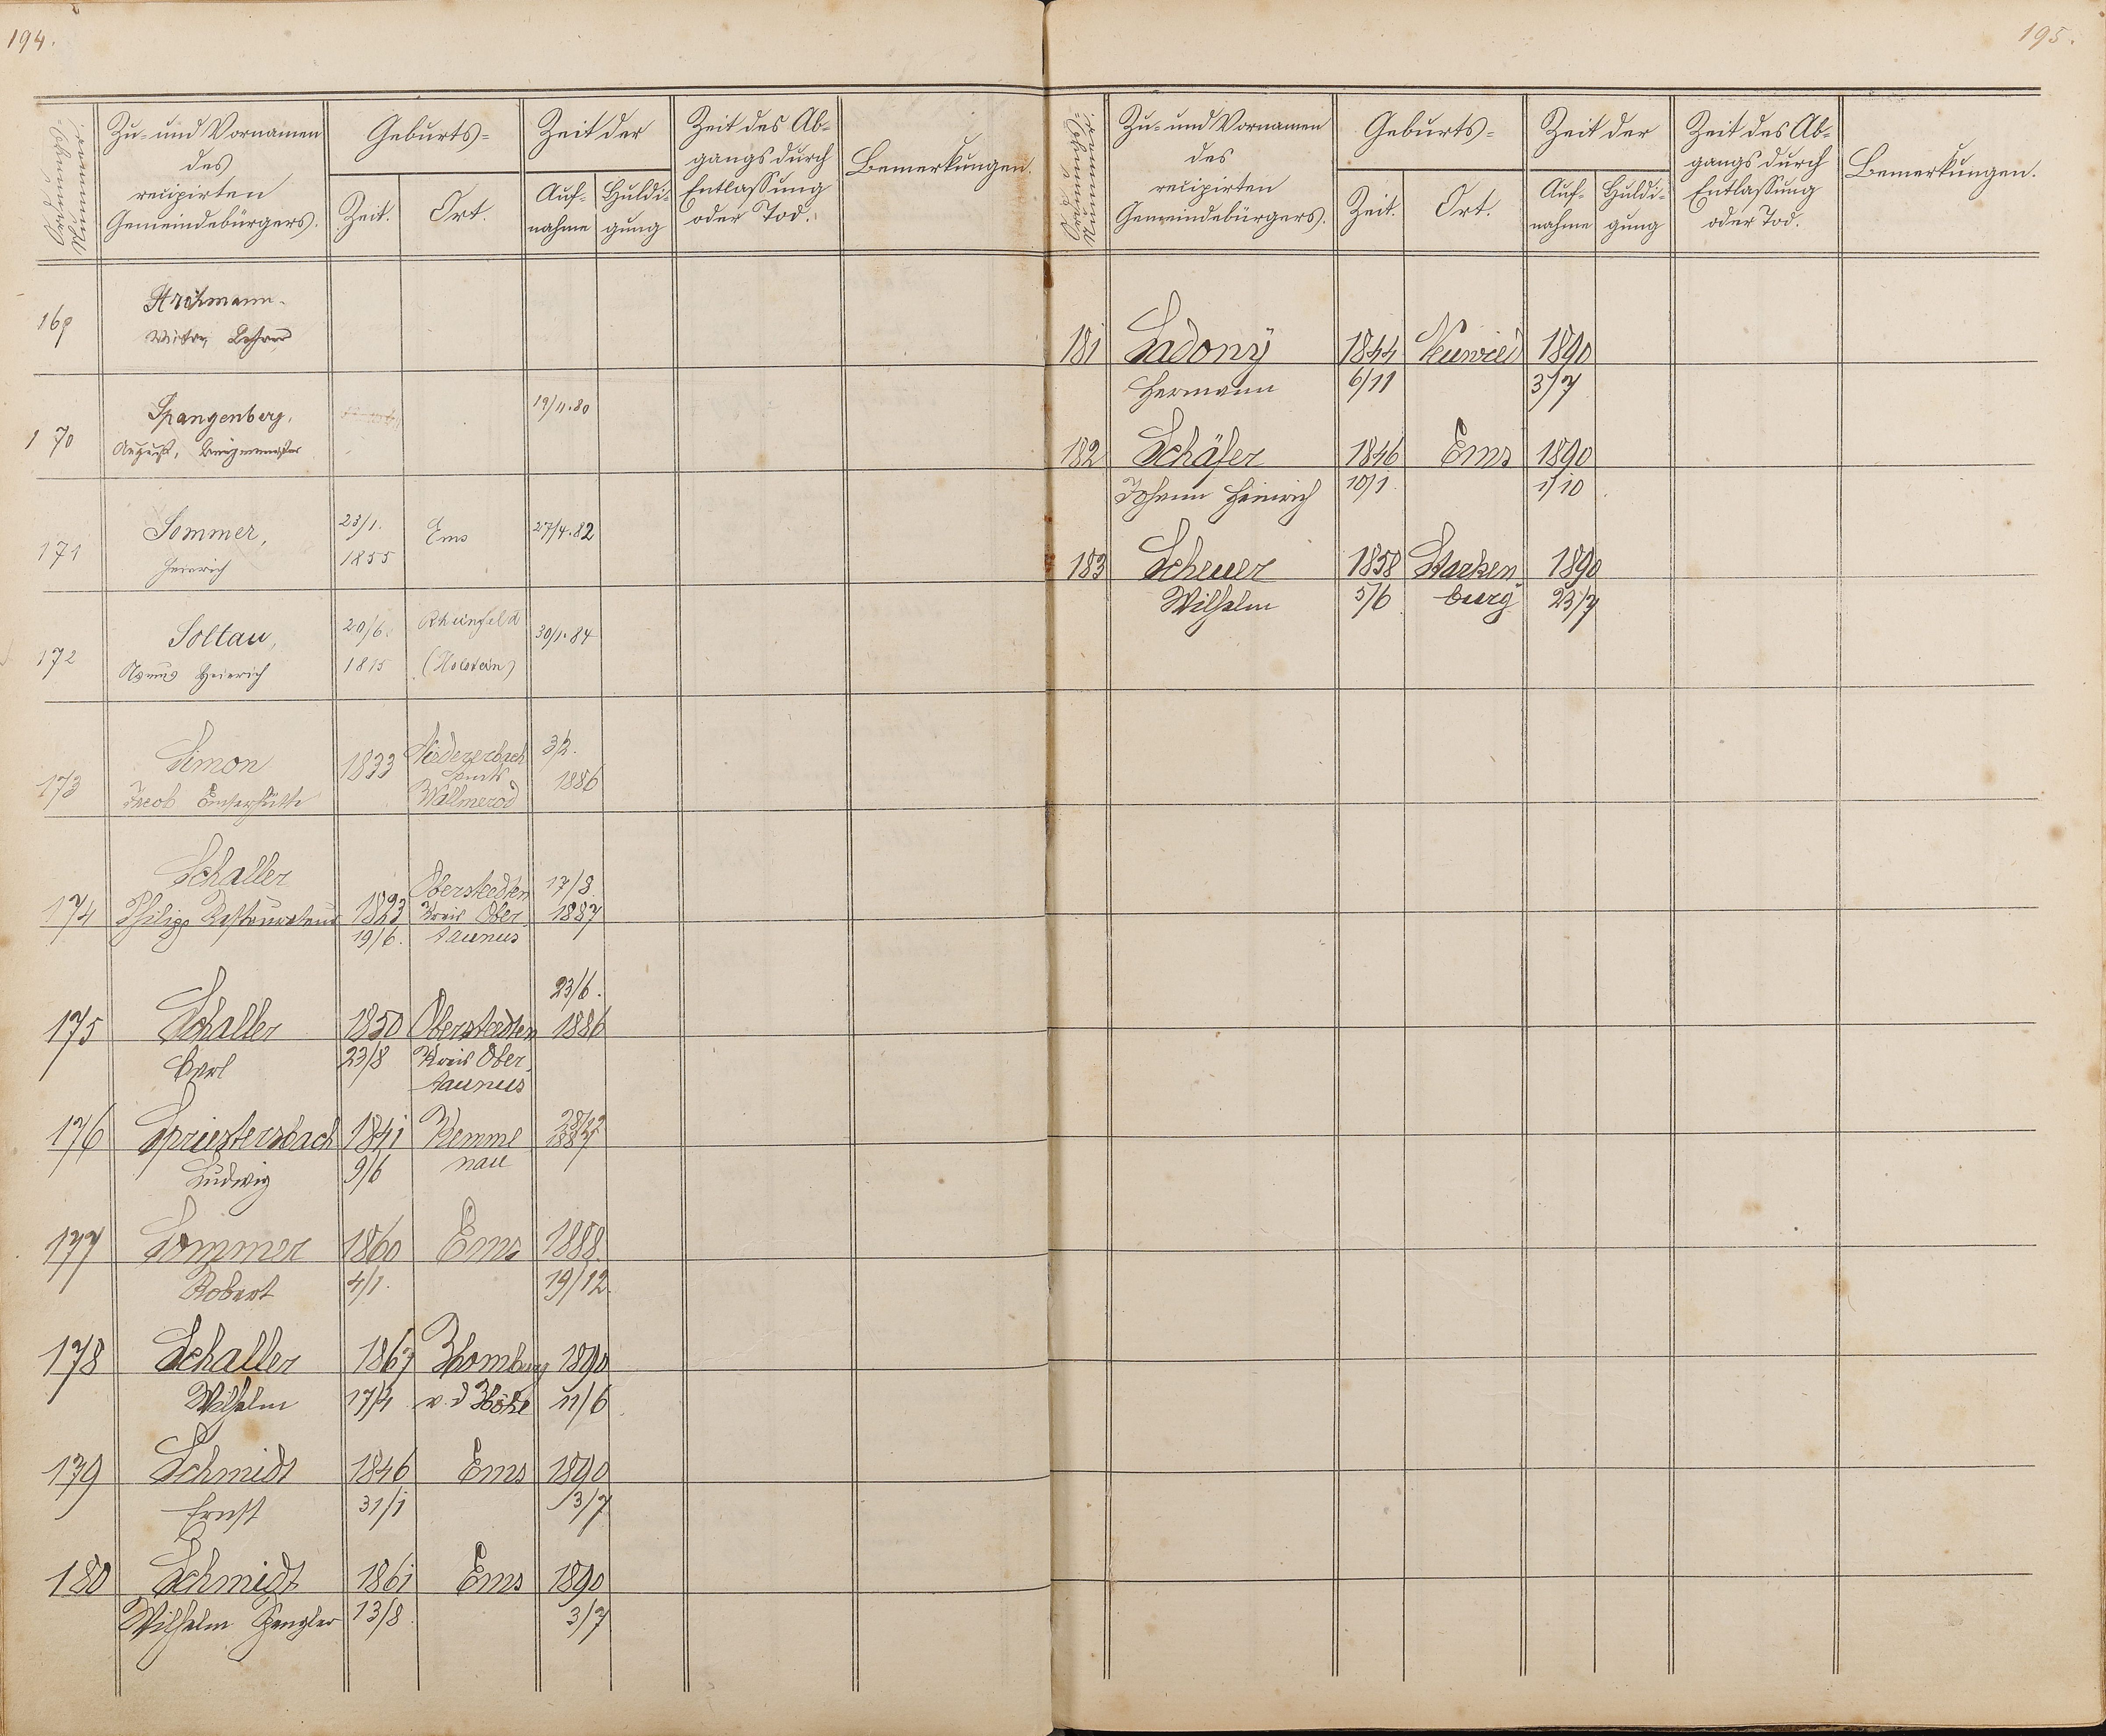 194.
Ordnungs-
Nummer.
Zu- und Vornamen
des
recipirten
Gemeindebürgers.
Geburts-
Zeit.
Ort.
Zeit der
Auf-
nahme
Huldi-
gung
Zeit des Ab-
gangs durch
Entlassung
oder Tod.
Bemerkungen.
169
170 Spangenberg, 19/11.80
August,
171 Sommer, 23/1. Ems 27/4.82
Heinrich 1855
172 Soltau, 20/6. Rheinfeld 30/1.84
Heinrich 1815 (Holstein)
173 Simon 1833 Niedererbach 3/2.
Jacob Emserhütte Amts 1886
Wallmerod
Schaller Oberstedten 17/8.
174 Philipp Restaurateur 1823 Kreis Ober 1887
19/6. taunus
23/6.
175 Schaller 1850 Oberstedten 1886
Carl 23/8 Kreis Ober
taunus
176 Spriestersbach 1841 Kemme 28/12
1887
Ludwig 9/6 nau
177 Sommer 1860 Ems 1888.
Robert 4/1. 19/12.
178 Schaller 1867 Homburg 1890
Wilhelm 17/4 v. d Höhe 11/6
179 Schmidt 1846 Ems 1890
Ernst 31/1 3/7
180 Schmidt 1861 Ems 1890
Wilhelm 13/8 3/7
195.
Ordnungs-
Nummer.
Zu- und Vornamen
des
recipirten
Gemeindebürgers.
Geburts-
Zeit.
Ort.
Zeit der
Auf-
nahme
Huldi-
gung
Zeit des Ab-
gangs durch
Entlassung
oder Tod.
Bemerkungen.
181 Sadony 1844 Neuwied 1890
Hermann 6/11 3/7
182 Schäfer 1846 Ems 1890
Johann Heinrich 10/1. 1/10
183 Scheuer 1858 Starken 1890
Wilhelm 5/6 burg 23/7